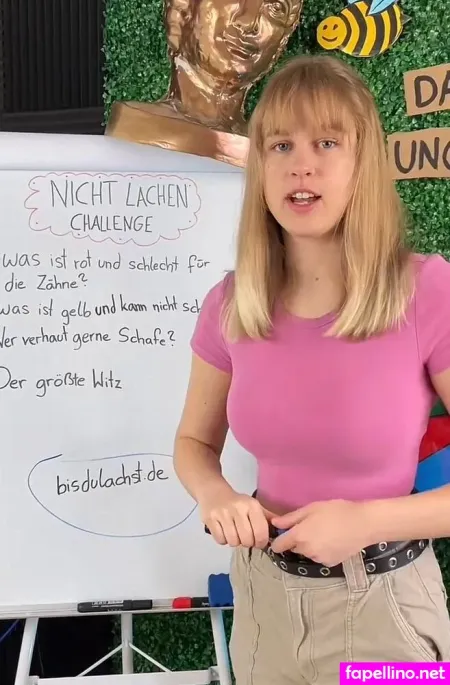 NICHT LACHEN
CHALLENGE
was ist rot und schlecht für
die Zähne?
was ist gelb und kann nicht
verhaut gerne Schafe?
Der größte Witz
bisdulachst.de
fapellino.net